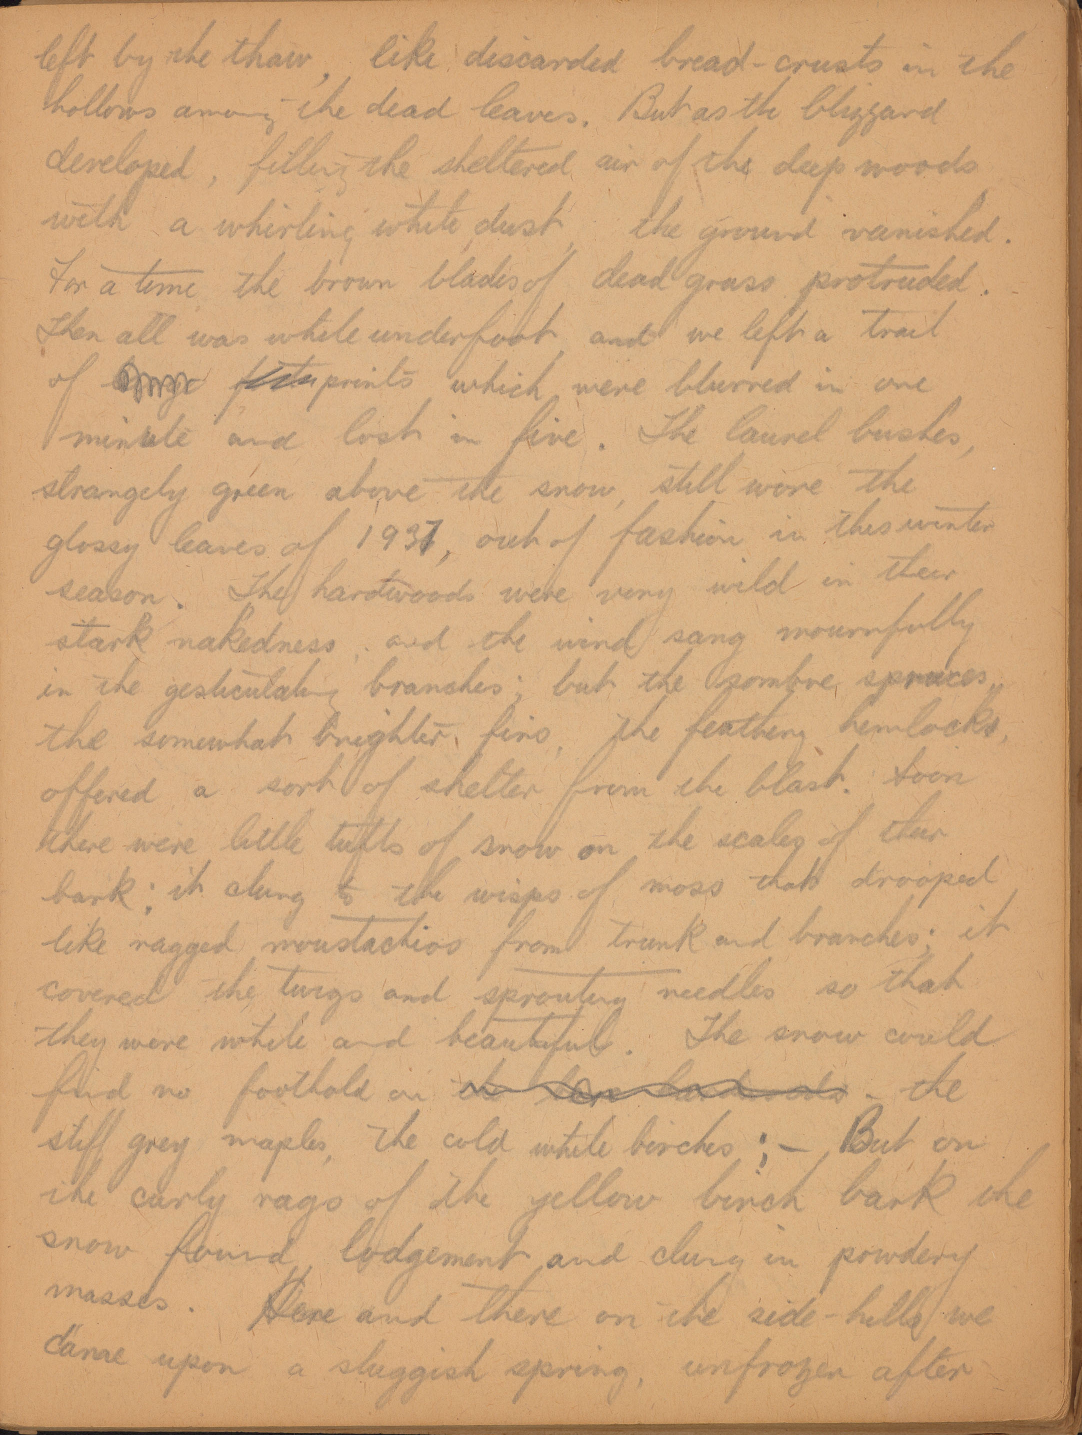 left by the thaw, like discarded bread-crusts in the
hollows among the dead leaves. But as the blizzard
developed, filling the sheltered air of the deep woods
with a whirling white dust, the ground vanished.
For a time the brown blades of dead grass protruded.
Then all was white underfoot, and we left a trail
of prints which were blurred in one
minute and lost in five. The laurel bushes,
strangely green above the snow, still wore the
glossy leaves of 1937, out of fashion in this winter
season. The hardwoods were very wild in their
stark nakedness, and the wind sang mournfully
in the gesticulating branches; but the sombre spruces,
the somewhat brighter firs, the feathery hemlocks,
offered a sort of shelter from the blast. Soon
there were little tufts of snow on the scales of their
bark; it clung to the wisps of moss that drooped
like ragged moustachios from trunk and branches; it
covered the twigs and sprouting needles so that
they were white and beautiful. The snow could
find no foothold on the bare hardwoods - the
stiff grey maples, the cold white birches; - But on
the curly rags of the yellow birch bark the
snow found lodgement and clung in powdery
masses. Here and there on the side-hills we
came upon a sluggish spring, unfrozen after